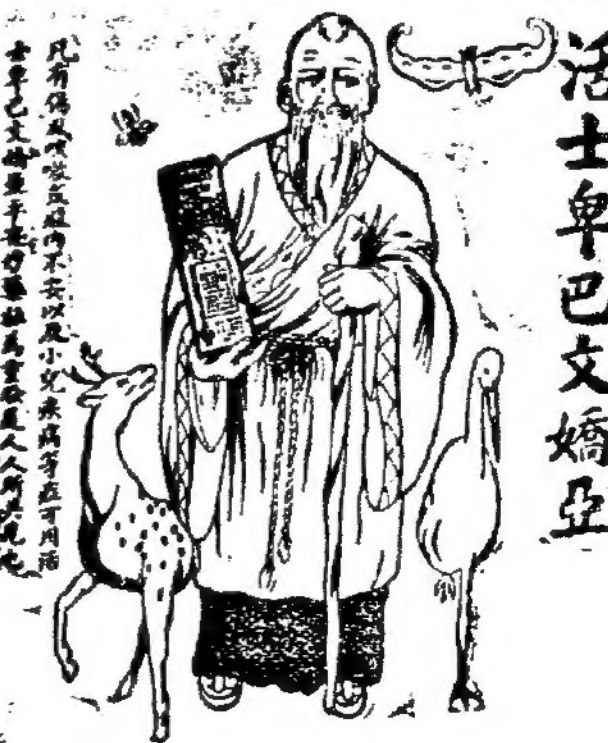 活士卑巴文嬌亞
凡有傷風咳嗽並肚內不安以及小兒疾病等症可用活
士卑巴文嬌亞妙藥為靈是人人所共見也